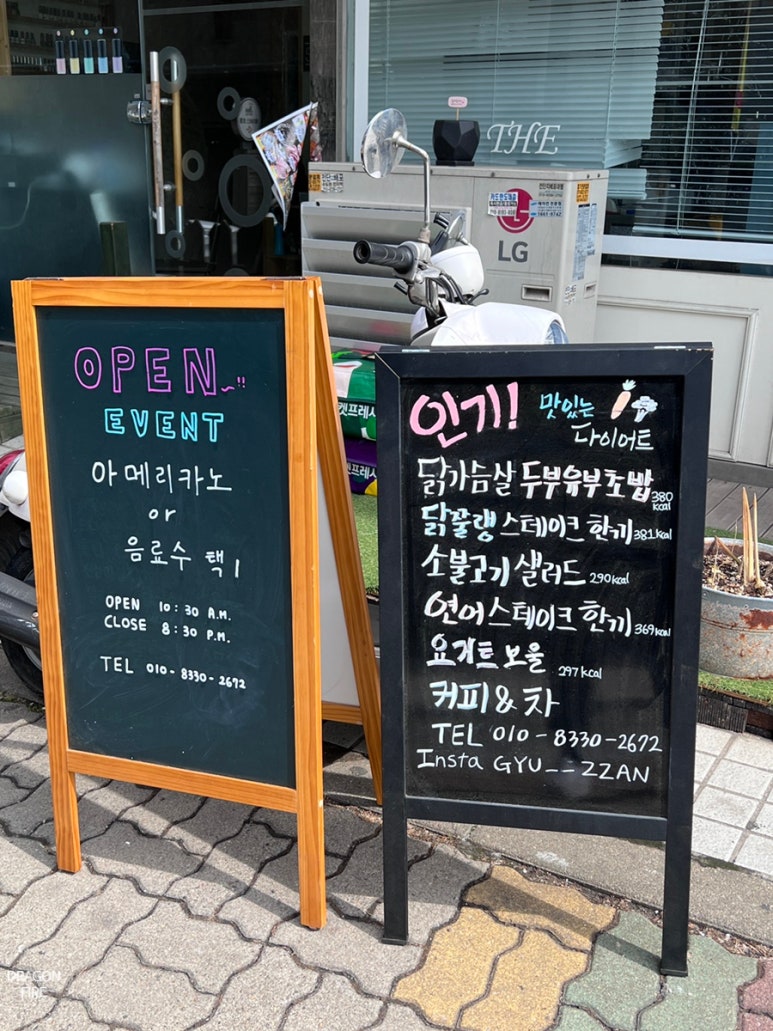 THE
LG
OPEN~!!
EVENT
아메리카노
or
음료수 택1
OPEN 10:30 A.M.
CLOSE 8:30 P.M.
TEL 010-8330-2672
인기! 맛있는
다이어트
닭가슴살 두부유부초밥 380 kcal
닭꼴랭 스테이크 한끼 381kcal
소불고기 샐러드 290kcal
연어스테이크 한끼 369kcal
요거트 보울 297kcal
커피 & 차
TEL 010-8330-2672
Insta GYU__ZZAN
DRAGON
FIRE